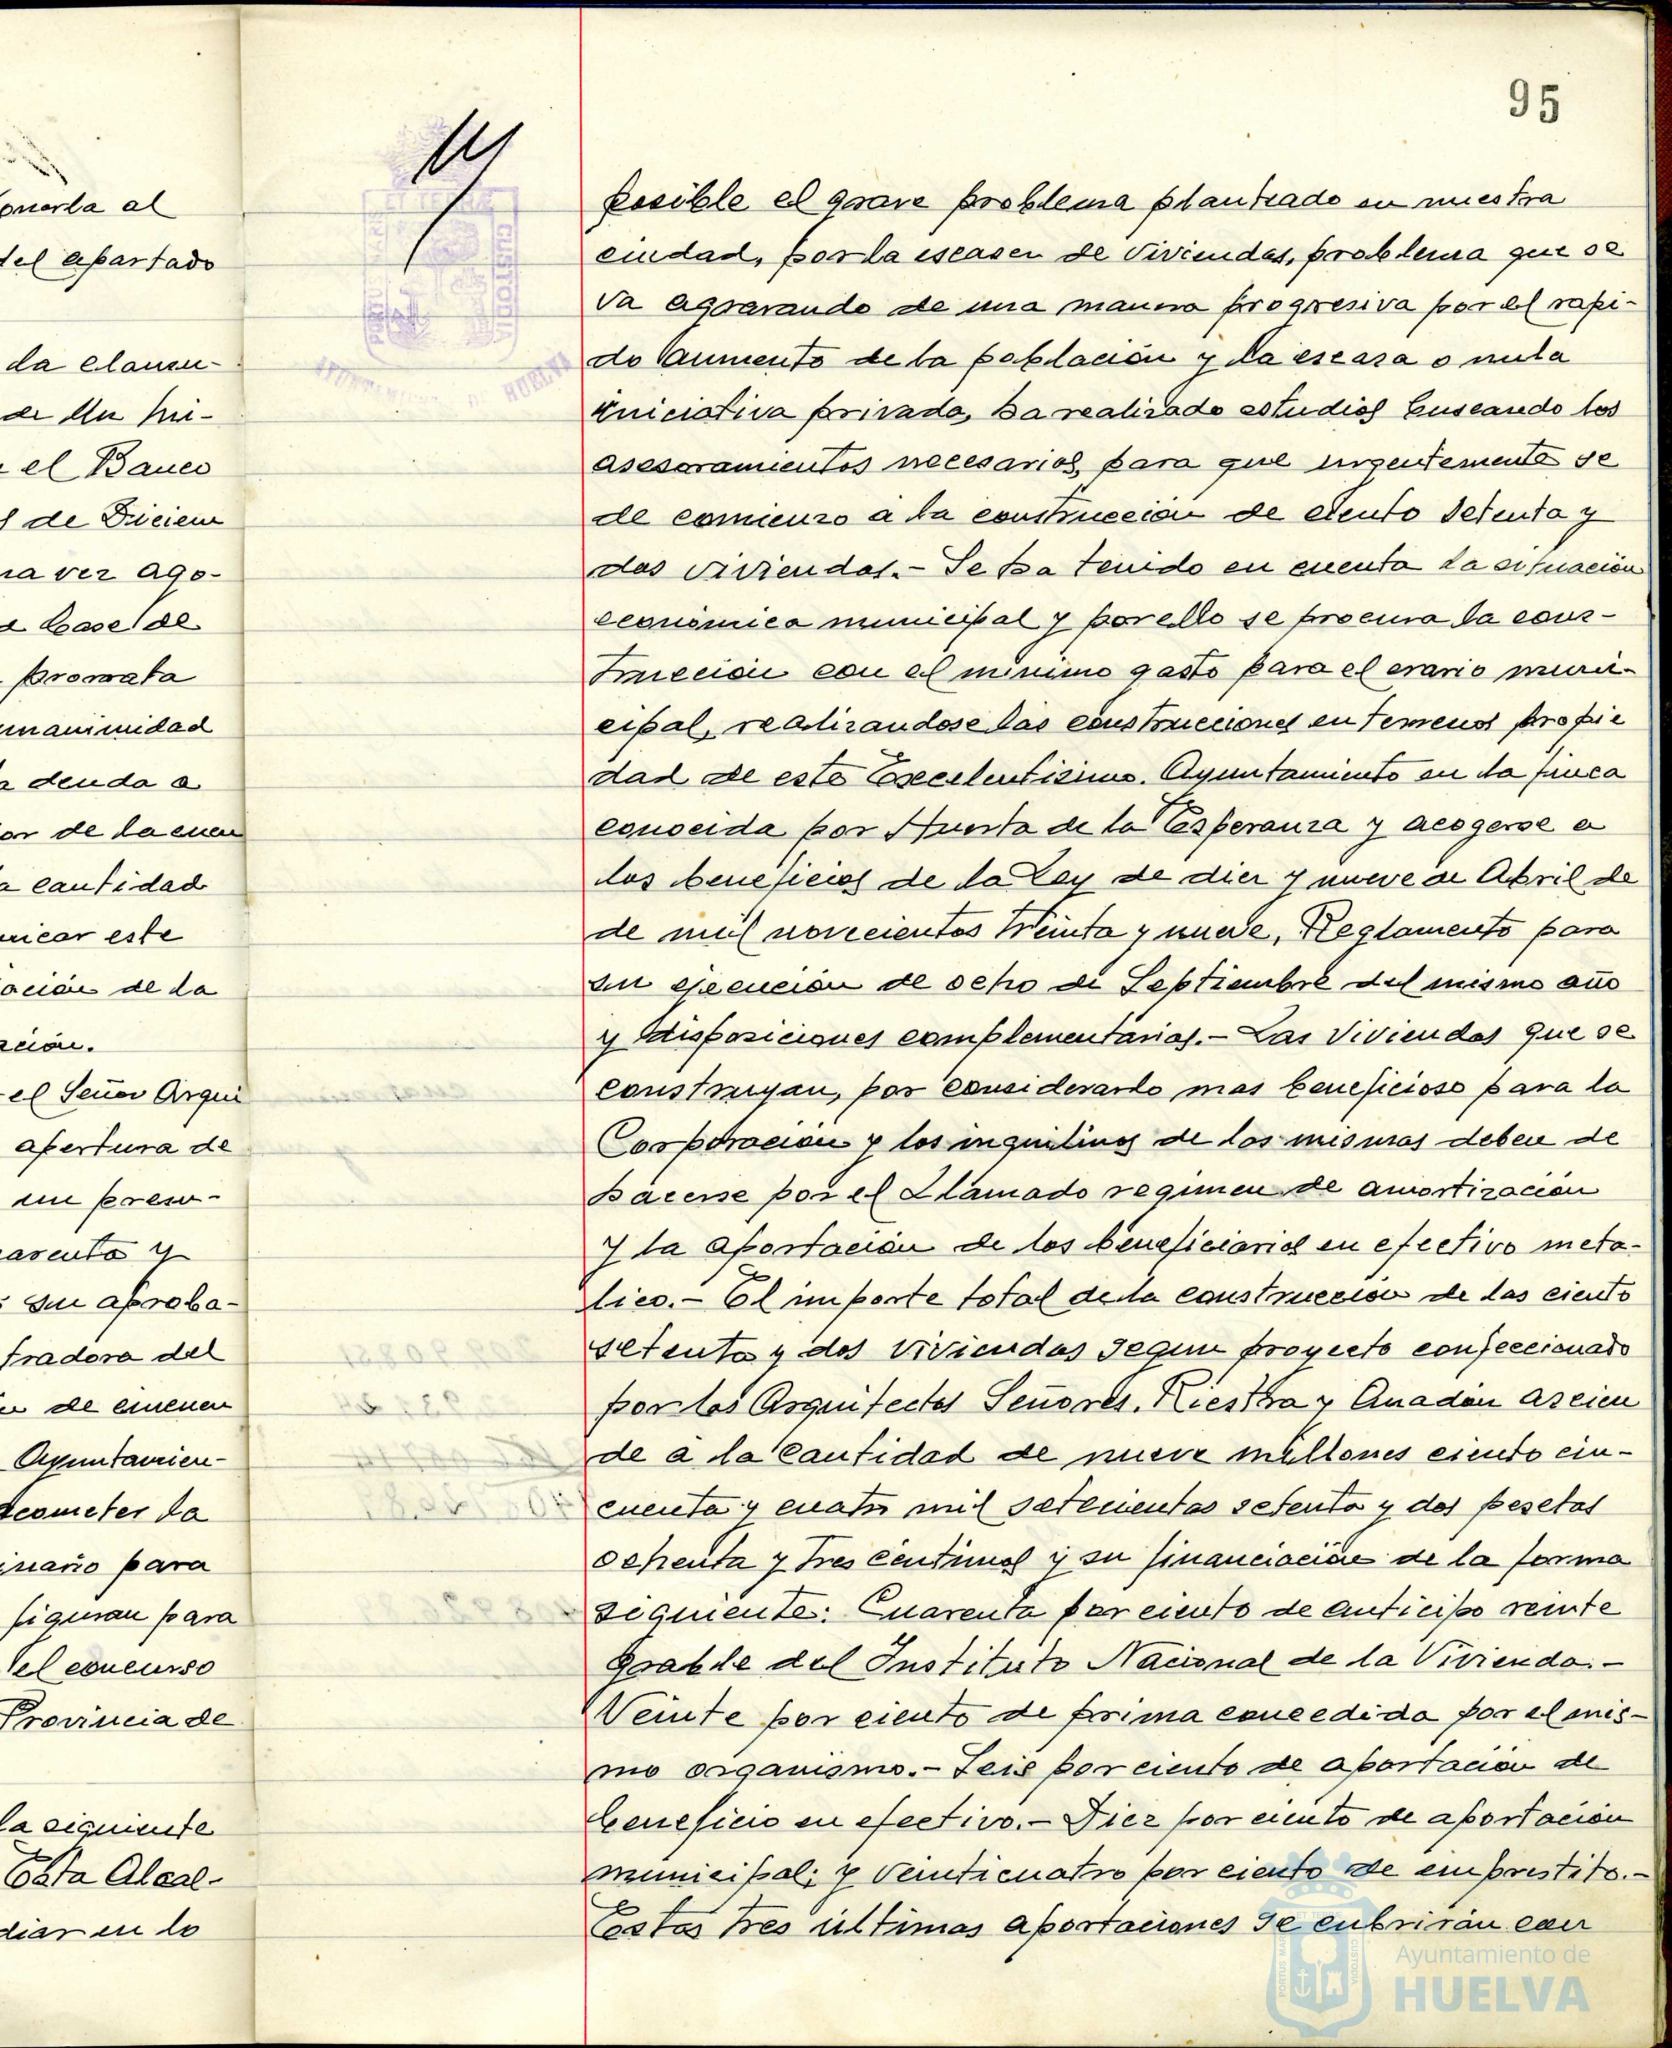 95
posible el grave problema planteado en nuestra
ciudad, por la escasez de viviendas, problema que se
va agravando de una manera progresiva por el rapi-
do aumento de la población y la escasa o nula
iniciativa privada, ha realizado estudios buscando los
asesoramientos necesarios para que urgentemente se
de comienzo a la construcción de ciento setenta y
dos viviendas.- Se ha tenido en cuenta la situación
económica municipal y por ello se procura la cons-
trucción con el mínimo gasto para el erario muni-
cipal, realizandose las construcciones en terrenos propie
dad de este Excelentisimo. Ayuntamiento en la finca
conocida por Huerta de la Esperanza y acogerse a
los beneficios de la Ley de diez y nueve de Abril de
de mil novecientos treinta y nueve, Reglamento para
su ejecución de ocho de Septiembre del mismo año
y disposiciones complementarias.- Las Viviendas que se
construyan, por considerarlo mas beneficioso para la
Corporación y los inquilinos de las mismas deben de
hacerse por el llamado regimen de amortización
y la aportación de los beneficiarios en efectivo meta-
lico.- El importe total de la construcción de las ciento
setenta y dos viviendas segun proyecto confeccionado
por los Arquitectos Señores. Riestra y Anadón ascien
de a la cantidad de nueve millones ciento cin-
cuenta y cuatro mil setecientas setenta y dos pesetas
ochenta y tres centimos y su financiación de la forma
siguiente: Cuarenta por ciento de anticipo reinte
grable del Instituto Nacional de la Vivienda.-
Veinte por ciento de prima concedida por el mis-
mo organismo.- Seis por ciento de aportación de
beneficio en efectivo.- Diez por ciento de aportación
municipal; y veinticuatro por ciento de emprestito.-
Estas tres últimas aportaciones se cubrirán con
onerla al
del apartado
da clausu-
de un mi-
el Banco
de Diciem
na vez ago-
a base de
prorrata
unanimidad
deuda a
or de la cuen
a cantidad
nicar este
ación de la
ción.
el Señor Arqui
apertura de
un presu-
arenta y
su aproba-
tradora del
de cincuen
Ayuntamien-
acometer la
inario para
figuran para
el concurso
Provincia de
la siguiente
Esta Alcal-
diar en lo
AYUNTAMIENTO DE HUELVA
PORTUS MARIS ET TERRAE CUSTODIA
Ayuntamiento de
HUELVA